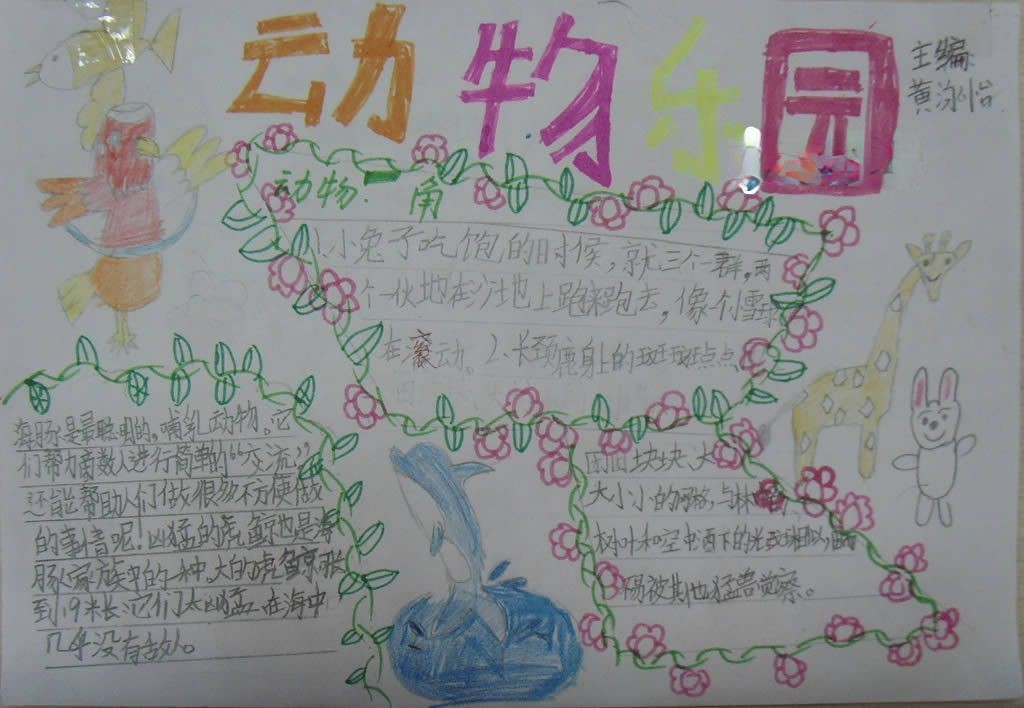 动物乐园
主编
黄泳怡
动物一角
1、小兔子吃饱的时候,就三个一群,两
个一伙地在沙地上跑来跑去,像个雪球
在滚动。2、长颈鹿身上的斑斑点点
团团块块、大
大小小的网格,与林
树叶和空中洒下的光斑相似,
易被其他猛兽觉察。
海肠是最聪明的。哺乳动物。它
们帮力商数人进行简单的“交流”
还能帮助人们做很多不便做
的事情呢!凶猛的虎鲸也是海
肠家族中的一种。大的虎鲸
到19米长它们太凶猛在海中
几乎没有敌人。